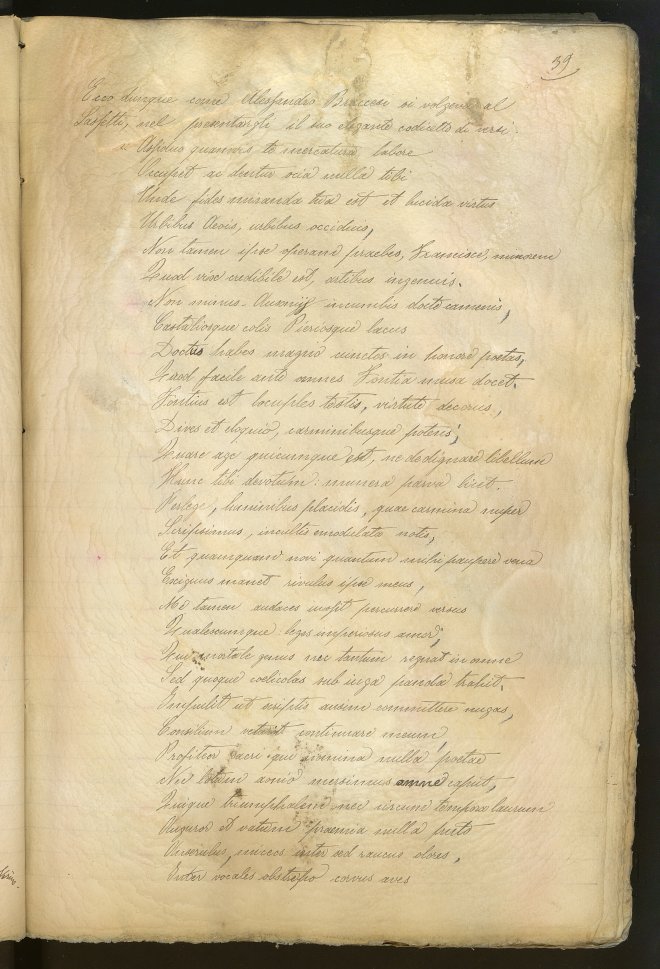 39
Ecco dunque come Alessandro Braccesi si volgeva al
Sassetti, nel presentargli il suo elegante codicetto di versi.
« Assiduo quamvis te mercatura labore
Occupet ac dentur ocia nulla tibi
Unde fides miranda tua est et lucida virtus
Urbibus Aeois, urbibus occiduis,
Non tamen ipse operam praebes, Francisce, minorem
Quod vix credibile est, artibus ingenuis.
Non minus Ausoniis incumbis docte camenis,
Castaliosque colis Pieriosque lacus
Doctos habes magno cunctos in honore poetas,
Quod facile ante omnes Fontia musa docet.
Fontius est locuples testis, virtute decorus,
Dives et eloquio, carminibusque potens;
Quare age quicumque est, ne dedignare libellum
Hunc tibi devotum: munera parva licet.
Perlege, luminibus placidis, quae carmina nuper
Scripsimus, incultis emodulata notis,
Et quamquam novi quantum mihi paupere vena
Exiguus manet rivulus ipse meus,
Me tamen audaces iussit percurrere versus
Qualescumque leges imperiosus amor,
Qui mortale genus nec tantum regnat in omne
Sed quoque coelicolas sub iuga panda trahit.
Impulit ut scriptis ausim committere nugas,
Consilium vetuit continuare meum,
Profiteor sacri qui nomina nulla poetae
Nec totum aonio mersimus amne caput,
Quique triumphalem nec circum tempora laurum
Auguror et vatum praemia nulla peto
Anserulus, miseros inter sed raucus olores,
Inter vocales obstrepo corvus aves